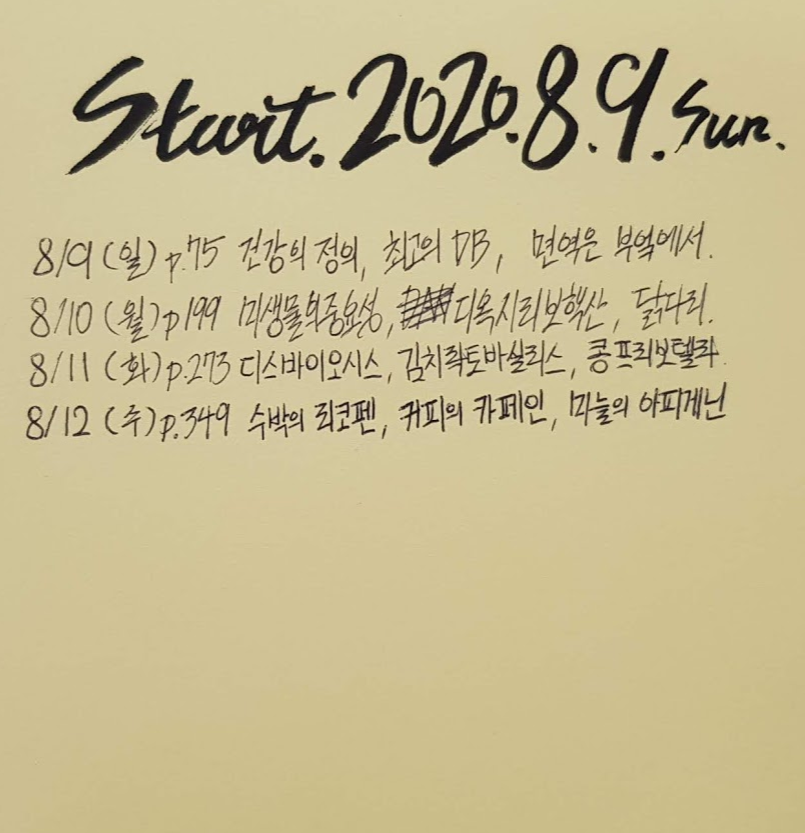 Start. 2020. 8. 9. Sun.
8/9 (일) p.75 건강의 정의, 최고의 DB, 면역은 부엌에서.
8/10 (월) p199 미생물의중요성, 디옥시리보핵산, 닭다리.
8/11 (화) p.273 디스바이오시스, 김치락토바실리스, 콩프리보텔라.
8/12 (수) p.349 수박의 리코펜, 커피의 카페인, 마늘의 아피게닌